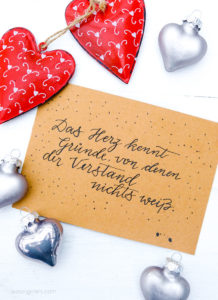 Das Herz kennt
Gründe, von denen
der Verstand
nichts weiß.